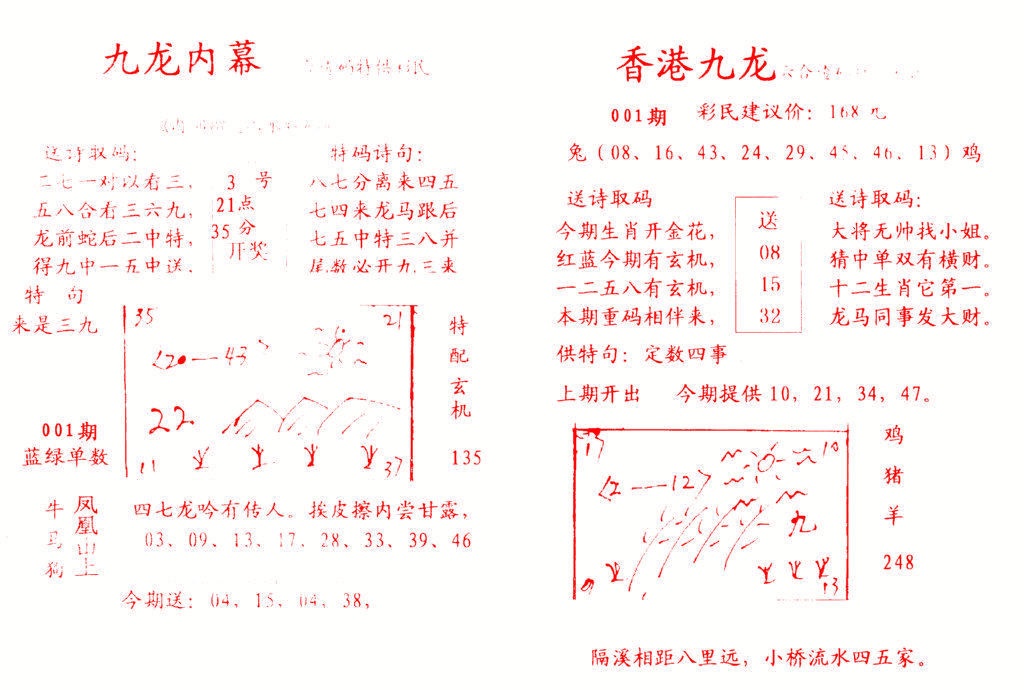 九龙内幕
送诗取码：
二七一对以看三，
五八合看三六九，
龙前蛇后二中特，
得九中一五中送，
3 号
21点
35 分
开奖
特码诗句：
八七分离来四五
七四来龙马跟后
七五中特三八并
尾数必开九三来
特 句
来是三九
001期
蓝绿单数
35
21
〈20—43〉
22
11
37
特配玄机
135
牛马狗
凤凰山上
四七龙吟有传人。挨皮擦内尝甘露，
03、09、13、17、28、33、39、46
今期送：04，15，04，38，
香港九龙
001期 彩民建议价：168元
兔（08、16、43、24、29、45、46、13）鸡
送诗取码
今期生肖开金花，
红蓝今期有玄机，
一二五八有玄机，
本期重码相伴来，
送
08
15
32
送诗取码：
大将无帅找小姐。
猜中单双有横财。
十二生肖它第一。
龙马同事发大财。
供特句：定数四事
上期开出 今期提供10，21，34，47。
17
10
〈2—12〉
九
9
13
鸡
猪
羊
248
隔溪相距八里远，小桥流水四五家。